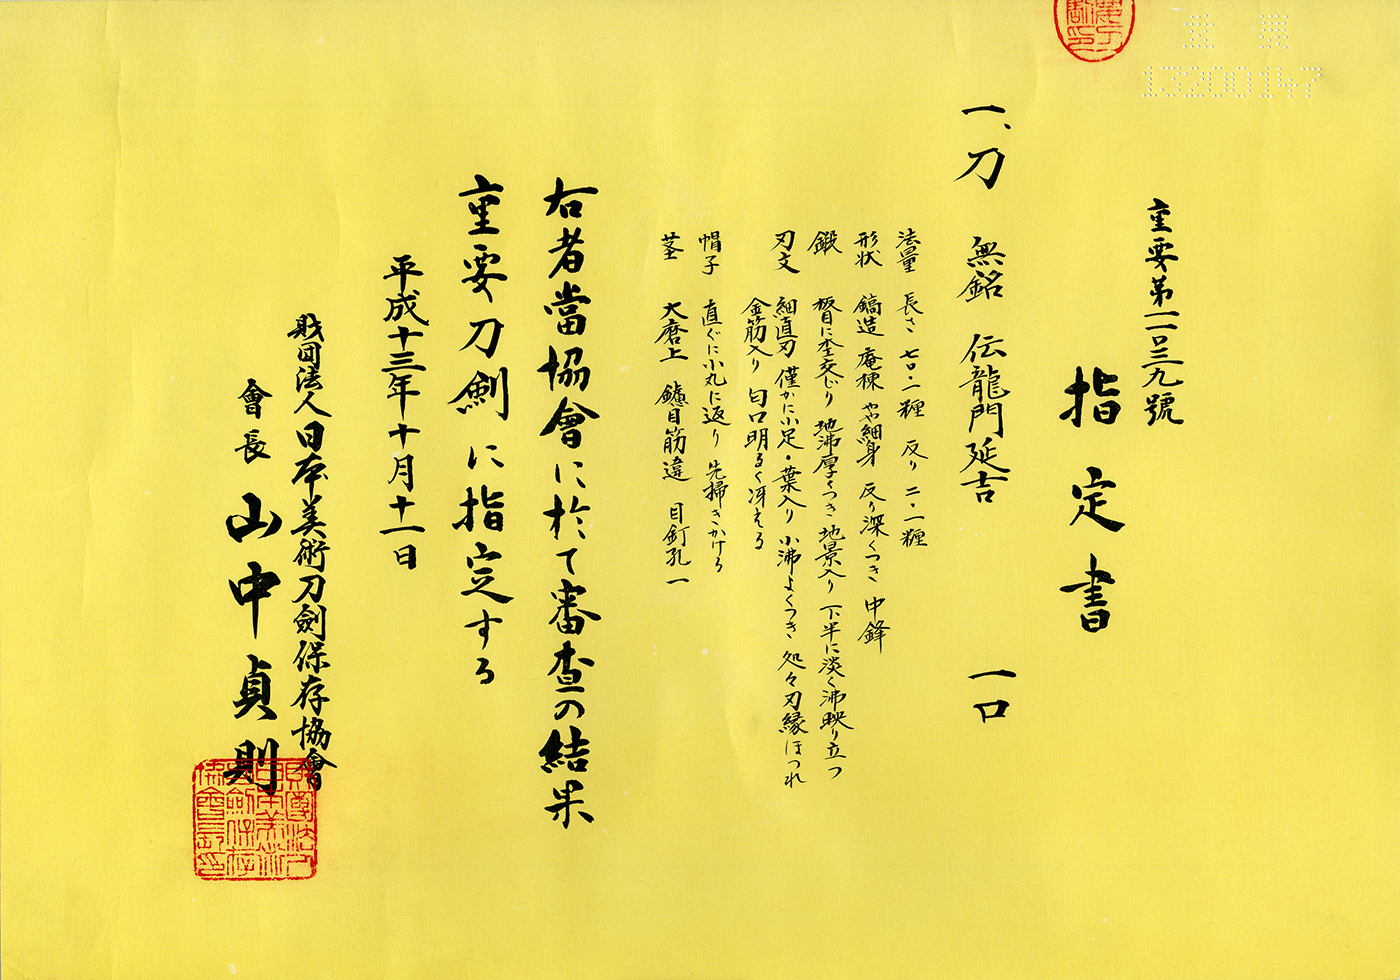 13200147
重要第一一〇三九號
指定書
一、刀 無銘 伝龍門延吉 一口
法量 長さ 七〇・二糎 反り 二・一糎
形状 鎬造 庵棟 やや細身 反り深くつき 中鋒
鍛 板目に杢交じり 地沸厚くつき 地景入り 下半に淡く沸映り立つ
刃文 細直刃 僅かに小足・葉入り 小沸よくつき 処々刃縁ほつれ
金筋入り 匂口明るく冴える
帽子 直ぐに小丸に返り 先掃きかける
茎 大磨上 鑢目筋違 目釘孔一
右者當協會に於て審査の結果
重要刀剣に指定する
平成十三年十月十一日
財団法人日本美術刀劍保存協會
會長 山中貞則